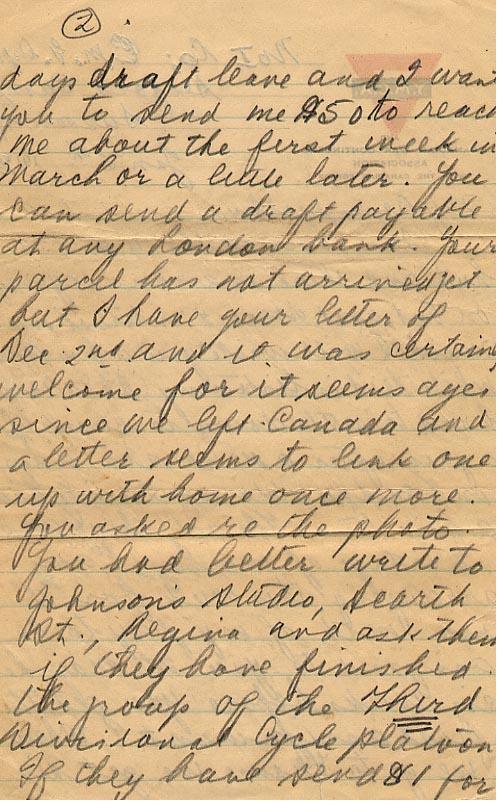 2
days draft leave and I want
you to send me $50 to reach
me about the first week in
March or a little later. You
can send a draft payable
at any London bank. Your
parcel has not arrived yet
but I have your letter of
Dec 2nd and it was certainly
welcome for it seems ages
since we left Canada and
a letter seems to link one
up with home once more.
You asked re the photo.
You had better write to
Johnson's Studio, Scarth
St., Regina and ask them
if they have finished
the group of the Third
Divisional Cycle platoon
If they have send $1 for